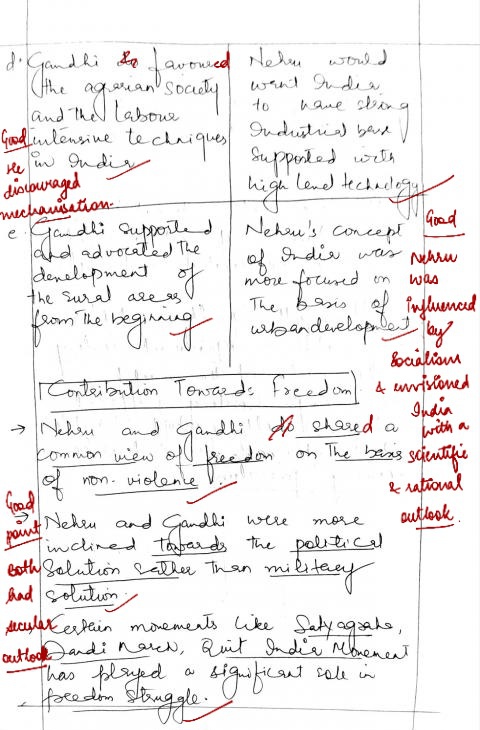 d. Gandhi favoured
the agrarian society
and the labour
intensive techniques
in India
Good
He
discouraged
mechanisation.
Nehru would
want India
to have strong
Industrial base
supported with
high level technology
e. Gandhi supported
and advocated the
development of
the rural areas
from the beginning
Nehru's concept
of India was
more focused on
The basis of
urban development
Good
Nehru
was
influenced
by
Socialism
& envisioned
India
with a
scientific
& rational
outlook.
Contribution Towards Freedom
→ Nehru and Gandhi shared a
common view of freedom on The basis
of non-violence.
→ Nehru and Gandhi were more
inclined towards the political
Solution rather Than military
solution.
Good
point
both
had
secular
outlook
Certain movements like Satyagraha,
Dandi March, Quit India Movement
has played a significant role in
freedom struggle.